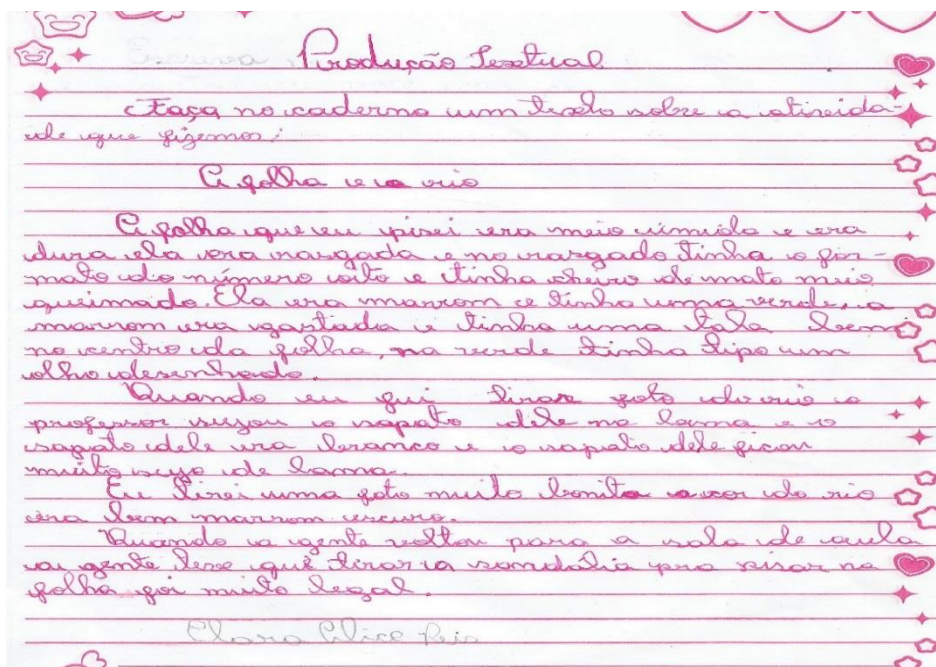 Escreva
Produção Textual
Faça no caderno um texto sobre a ativida-
de que fizemos:
A folha e a rio
A folha que eu pisei era meio úmida e era
dura ela era rasgada e no rasgado tinha o for-
mato do número oito e tinha cheiro de mato meio
queimado. Ela era marrom e tinha uma verde, a
marrom era gastada e tinha uma tala bem
no centro da folha, na verde tinha tipo um
olho desenhado.
Quando eu fui tirar foto do rio o
professor sujou o sapato dele na lama e o
sapato dele era branco e o sapato dele ficou
muito sujo de lama.
Eu tirei uma foto muito bonita a cor do rio
era bem marrom escuro.
Quando a gente voltou para a sala de aula
a gente teve que tirar a sandália pra pisar na
folha foi muito legal.
Clara Alice Reis